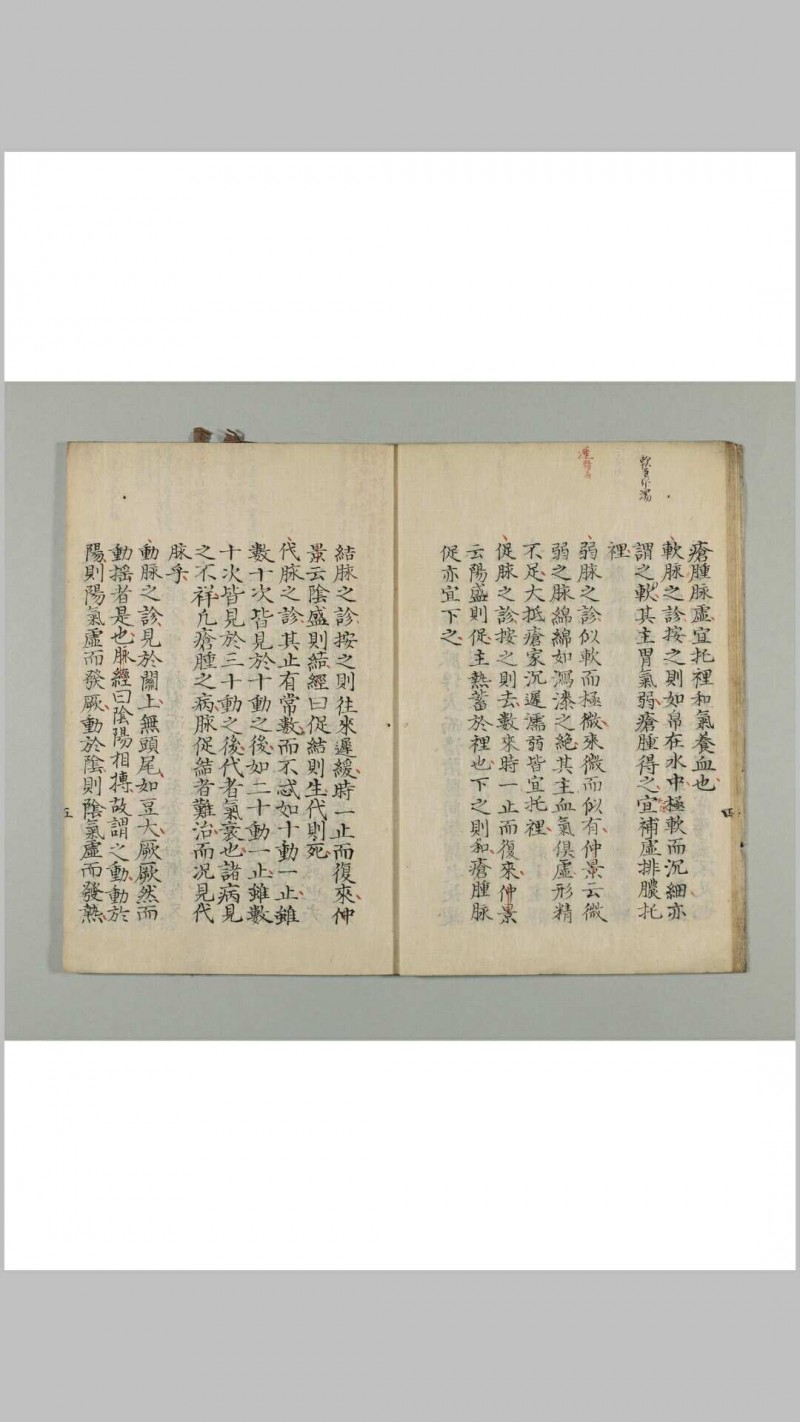 瘡腫脉虛宜托裡和氣養血也
軟脉之診按之則如帛在水中極軟而沉細亦
謂之軟其主胃氣弱瘡腫得之宜補虛排膿托
裡
弱脉之診似軟而極微來微而似有仲景云微
弱之脉綿綿如瀉漆之絕其主血氣俱虛形精
不足大抵瘡家沉遲濡弱皆宜托裡
促脉之診按之則去數來時一止而復來仲景
云陽盛則促主熱蓄於裡也下之則和瘡腫脉
促亦宜下之
四
結脉之診按之則往來遲緩時一止而復來仲
景云陰盛則結經曰促結則生代則死
代脉之診其止有常數而不忒如十動一止雖
數十次皆見於十動之後如二十動一止雖數
十次皆見於三十動之後代者氣衰也諸病見
之不祥凢瘡腫之病脉促結者難治而況見代
脉乎
動脉之診見於關上無頭尾如豆大厥厥然而
動搖者是也脉經曰陰陽相搏故謂之動動於
陽則陽氣虛而發厥動於陰則陰氣虛而發熱
五